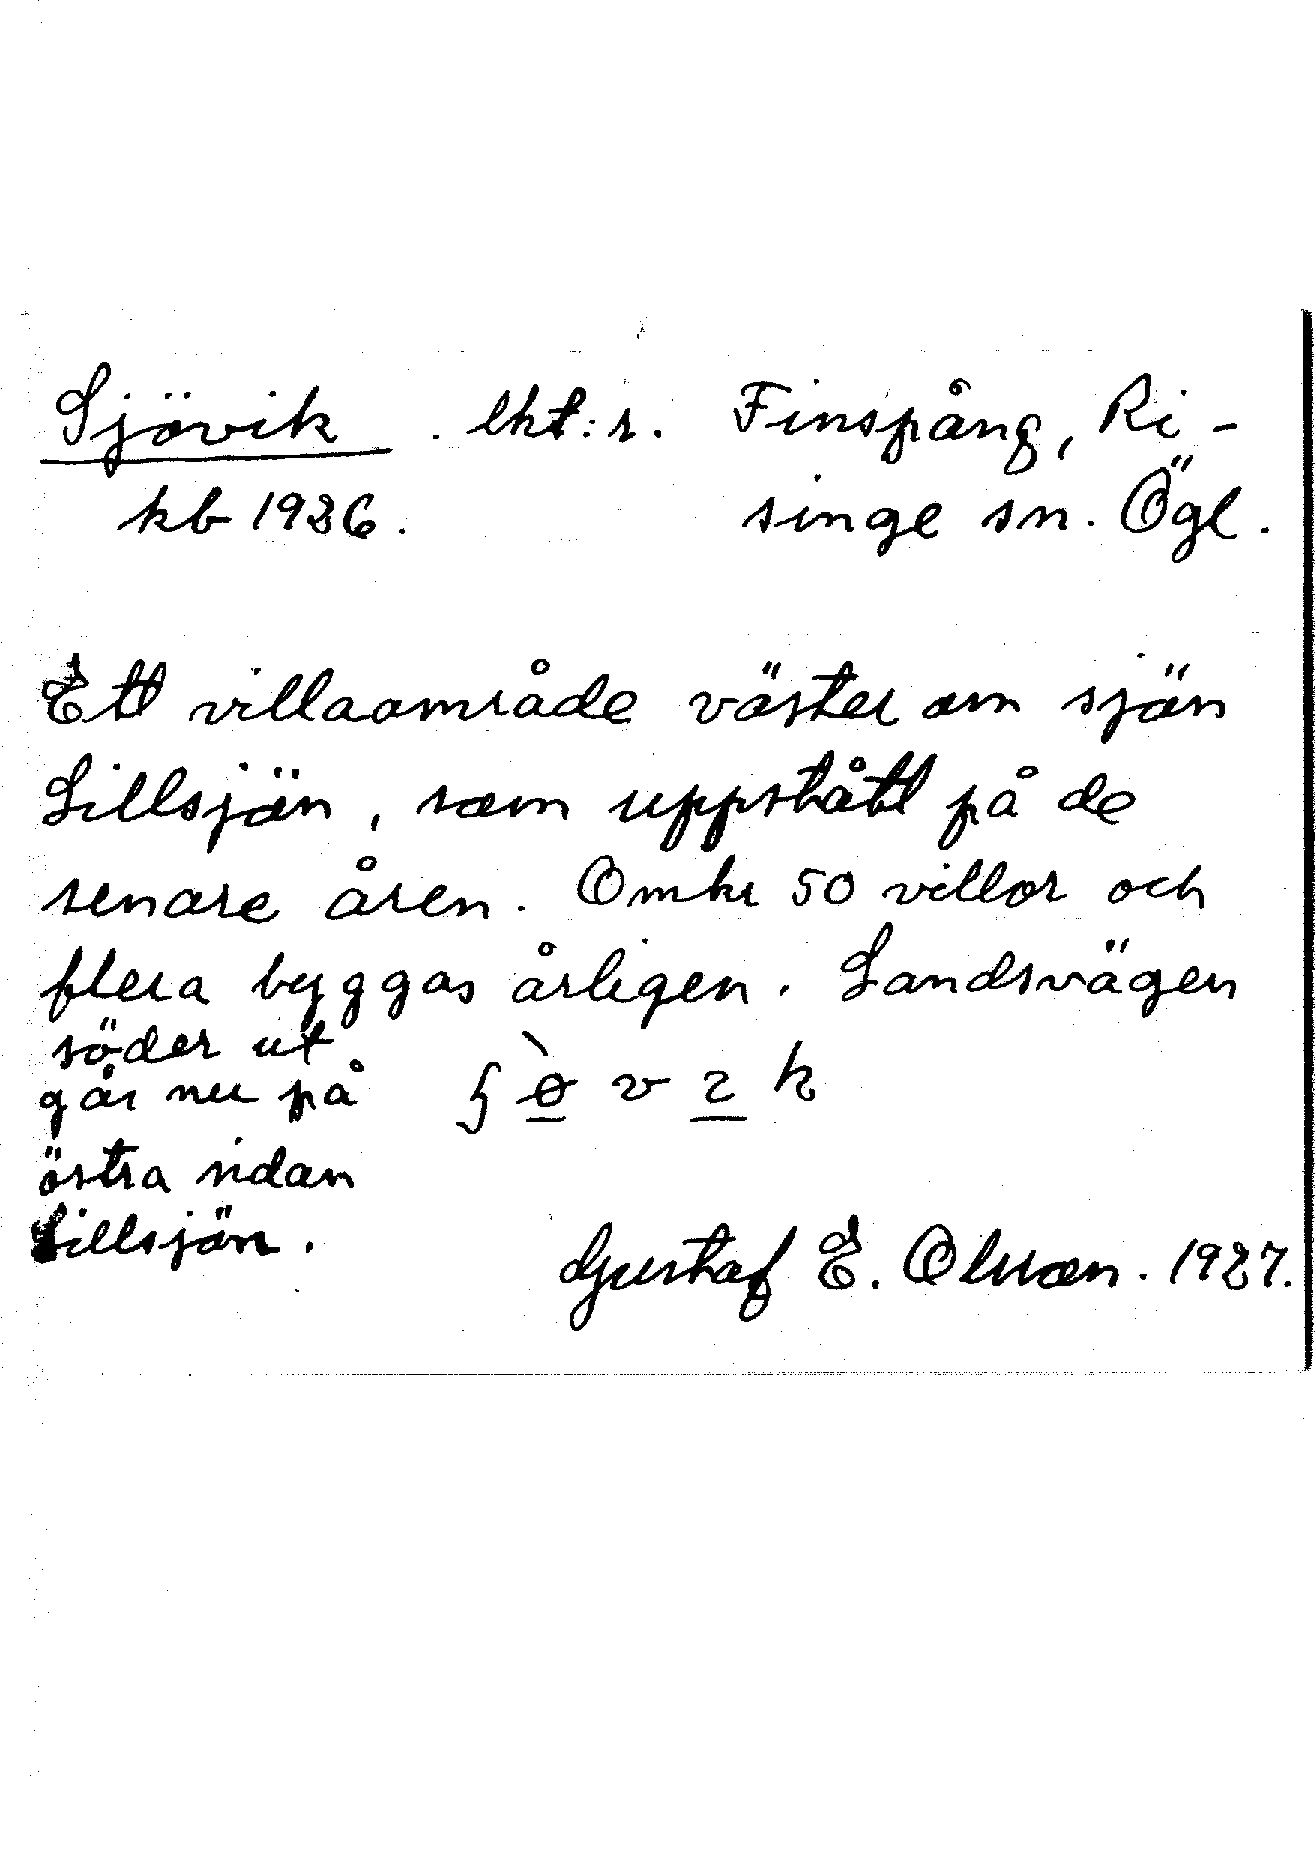 Sjövik . lht:s. Finspång, Ri-
kb 1926. singe sn. Ögl.
Ett villaområde väster om sjön
Lillsjön, som uppstått på de
senare åren. Omkr 50 villor och
flera byggas årligen. Landsvägen
söder ut
går nu på
östra sidan
Lillsjön.
Gustaf E. Olsson. 1927.